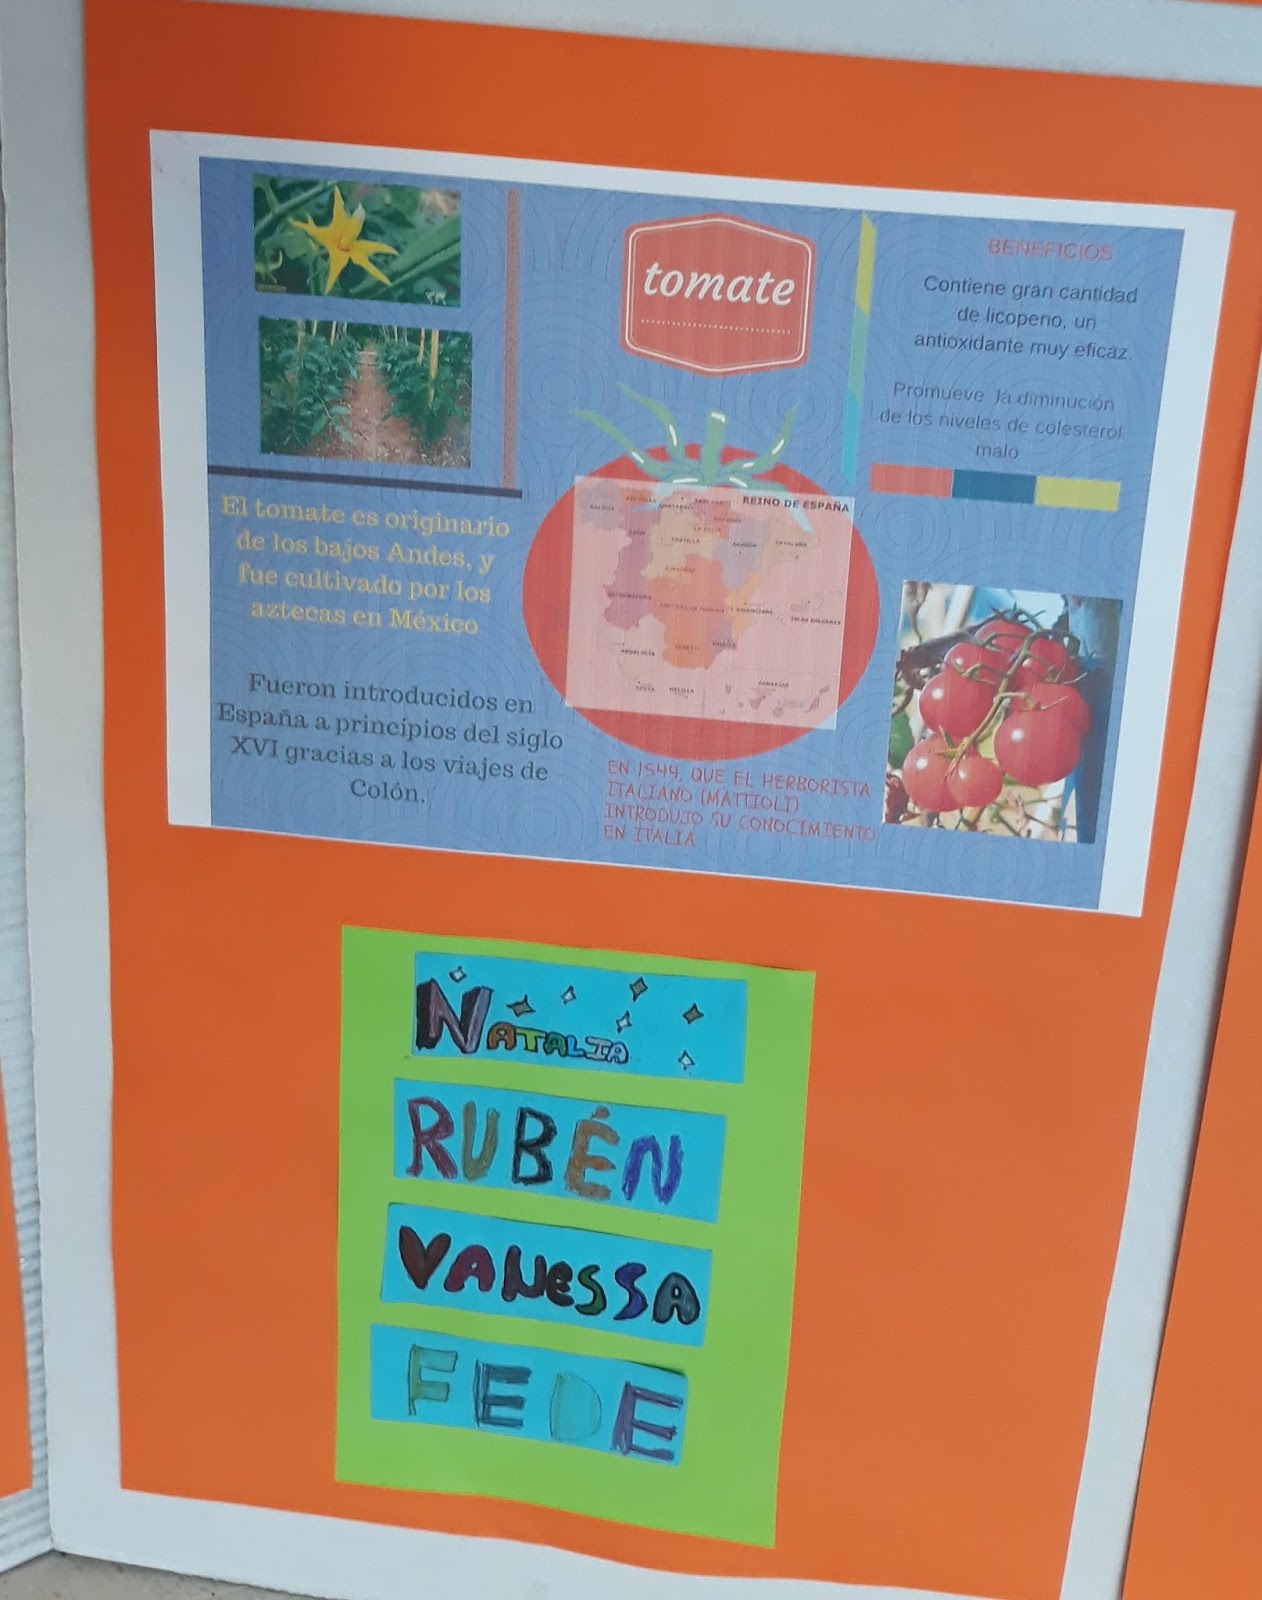 tomate
BENEFICIOS
Contiene gran cantidad
de licopeno, un
antioxidante muy eficaz.
Promueve la diminución
de los niveles de colesterol
malo
El tomate es originario
de los bajos Andes, y
fue cultivado por los
aztecas en México
Fueron introducidos en
España a principios del siglo
XVI gracias a los viajes de
Colón.
REINO DE ESPAÑA
CASTILLA
ARAGÓN
CATALUÑA
EXTREMADURA
ISLAS BALEARES
ANDALUCÍA
CEUTA
MELILLA
CANARIAS
EN 1544, QUE EL HERBORISTA
ITALIANO (MATTIOLI)
INTRODUJO SU CONOCIMIENTO
EN ITALIA
NATALIA
RUBÉN
VANESSA
FEDE